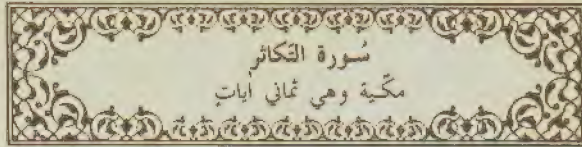 سُورة التكاثر
مكّية وهي ثماني آيات